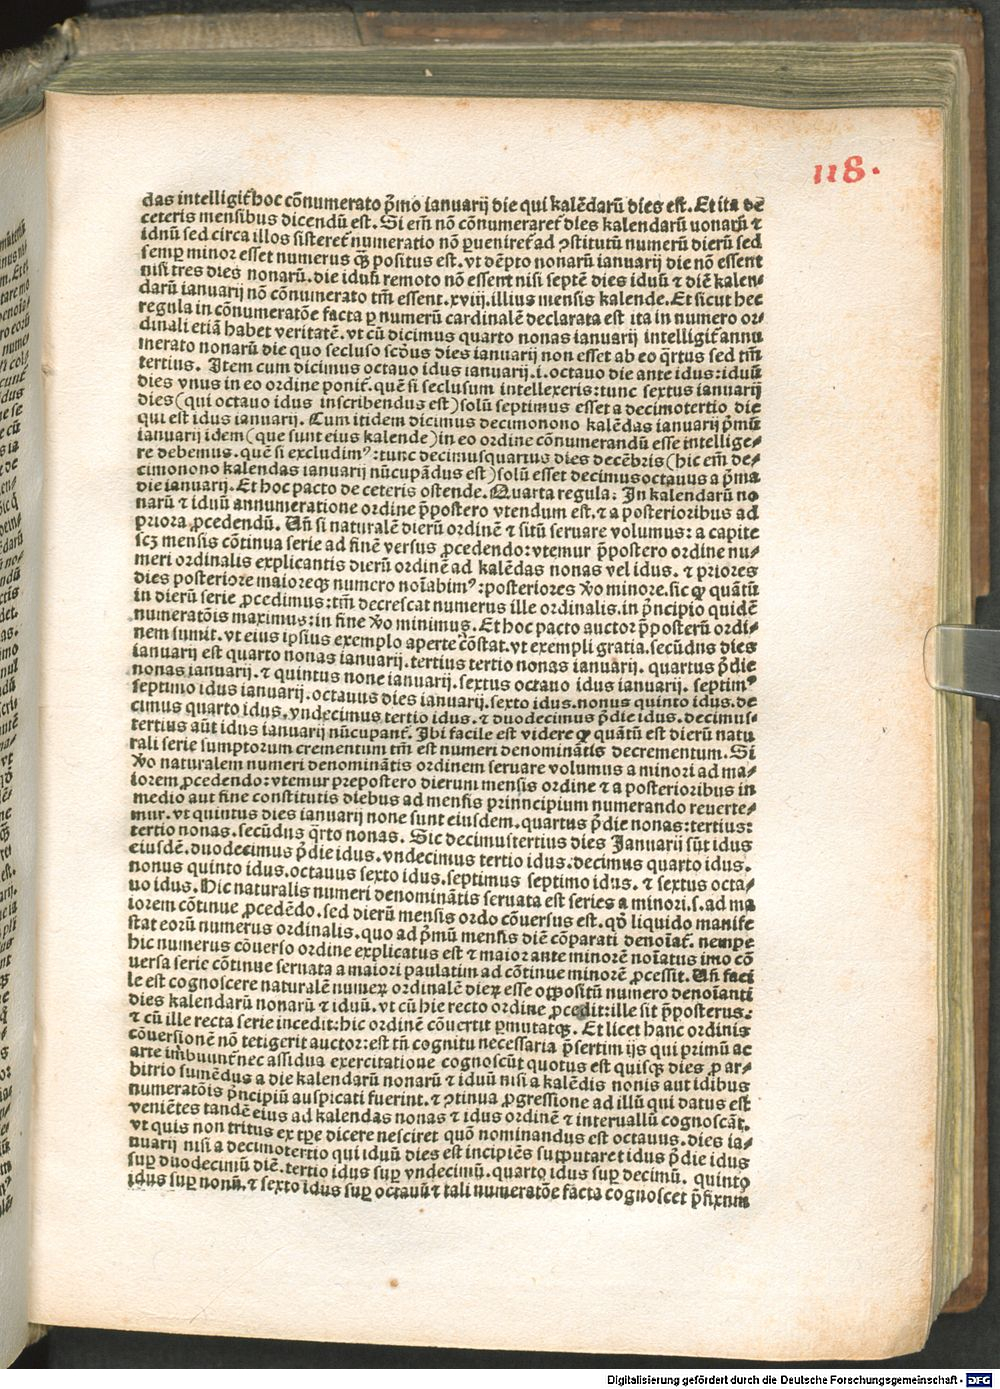 118.
das intelligit᷑ hoc cōnumerato p̄mo ianuarij die qui kalēdarū dies est. Et ita dē
ceteris mensibus dicendū est. Si em̄ nō cōnumeraret᷑ dies kalendarū nonarū ⁊
idnū sed circa illos sisteret᷑ numeratio nō ꝑueniret᷑ ad ꝯstitutū numerū dierū sed
semꝑ minor esset numerus qꝫ positus est. vt dēpto nonarū ianuarij die nō essent
nisi tres dies nonarū. die iduū remoto nō essent nisi septē dies iduū ⁊ diē kalen-
darū ianuarij nō cōnumerato tm̄ essent .xviij. illius mensis kalende. Et sicut hec
regula in cōnumeratōe facta ꝑ numerū cardinalē declarata est ita in numero or-
dinali etiā habet veritatē. vt cū dicimus quarto nonas ianuarij intelligit᷑ annu
merato nonarū die quo secluso scōus dies ianuarij non esset ab eo q̄rtus sed tm̄
tertius. Item cum dicimus octauo idus ianuarij .i. octauo die ante idus: iduū
dies vnus in eo ordine ponit᷑. quē si seclusum intellexeris: tunc sextus ianuarij
dies (qui octauo idus inscribendus est) solū septimus esset a decimotertio die
qui est idus ianuarij. Cum itidem dicimus decimonono kalēdas ianuarij p̄mū
ianuarij idem (que sunt eius kalende) in eo ordine cōnumerandū esse intellige-
re debemus. quē si excludimꝰ: tunc decimusquartus dies decēbris (hic em̄ de-
cimonono kalendas ianuarij nūcupādus est) solū esset decimusoctauus a p̄ma
die ianuarij. Et hoc pacto de ceteris ostende. Quarta regula: In kalendarū no
narū ⁊ iduū annumeratione ordine p̄postero vtendum est. ⁊ a posterioribus ad
priora ꝓcedendū. Un̄ si naturalē dierū ordinē ⁊ sitū seruare volumus: a capite
scꝫ mensis cōtinua serie ad finē versus ꝓcedendo: vtemur p̄postero ordine nu-
meri ordinalis explicantis dierū ordinē ad kalēdas nonas vel idus. ⁊ priores
dies posteriore maioreqꝫ numero noīabimꝰ: posteriores v̄o minore. sic ꝙ quātū
in dierū serie ꝓcedimus: tm̄ decrescat numerus ille ordinalis. in p̄ncipio quidē
numeratōis maximus: in fine v̄o minimus. Et hoc pacto auctor p̄posterū ordi-
nem sumit. vt eius ipsius exemplo aperte cōstat. vt exempli gratia. secūdus dies
ianuarij est quarto nonas ianuarij. tertius tertio nonas ianuarij. quartus p̄die
nonas ianuarij. ⁊ quintus none ianuarij. sextus octauo idus ianuarij. septimꝰ
septimo idus ianuarij. octauus dies ianuarij. sexto idus. nonus quinto idus. de
cimus quarto idus. vndecimus tertio idus. ⁊ duodecimus p̄die idus. decimus-
tertius aūt idus ianuarij nūcupant᷑. Ibi facile est videre ꝙ quātū est dierū natu
rali serie sumptorum crementum tm̄ est numeri denominātis decrementum. Si
v̄o naturalem numeri denominātis ordinem seruare volumus a minori ad ma-
iorem ꝓcedendo: vtemur prepostero dierum mensis ordine ⁊ a posterioribus in
medio aut fine constitutis diebus ad mensis prinncipium numerando reuerte-
mur. vt quintus dies ianuarij none sunt eiusdem. quartus p̄die nonas: tertius:
tertio nonas. secūdus q̄rto nonas. Sic decimustertius dies Januarij sūt idus
eiusdē. duodecimus p̄die idus. vndecimus tertio idus. decimus quarto idus.
nonus quinto idus. octauus sexto idus. septimus septimo idus. ⁊ sextus octa-
uo idus. Hic naturalis numeri denominātis seruata est series a minori .s. ad ma
iorem cōtinue ꝓcedēdo. sed dierū mensis ordo cōuersus est. qd̄ liquido manife
stat eorū numerus ordinalis. quo ad p̄mū mensis diē cōparati denoīat᷑. nempe
hic numerus cōuerso ordine explicatus est ⁊ maior ante minorē noīatus imo cō
uersa serie cōtinue seruata a maiori paulatim ad cōtinue minorē ꝓcessit. Un̄ faci
le est cognoscere naturalē numeꝝ ordinalē dieꝝ esse oꝑpositū numero denoīanti
dies kalendarū nonarū ⁊ iduū. vt cū hic recto ordine ꝓcedit: ille sit p̄posterus:
⁊ cū ille recta serie incedit: hic ordinē cōuertit ꝑmutatqꝫ. Et licet hanc ordinis
cōuersionē nō tetigerit auctor: est tn̄ cognitu necessaria p̄sertim ijs qui primū ac
arte imbuunt᷑ nec assidua exercitatione cognoscūt quotus est quisqꝫ dies ꝓ ar-
bitrio sumēdus a die kalendarū nonarū ⁊ iduū nisi a kalēdis nonis aut idibus
numeratōis p̄ncipiū auspicati fuerint. ⁊ ꝯtinua ꝓgressione ad illū qui datus est
veniētes tandē eius ad kalendas nonas ⁊ idus ordinē ⁊ interuallū cognoscāt.
vt quis non tritus ex tꝑe dicere nesciret quō nominandus est octauus. dies ia-
nuarij nisi a decimotertio qui iduū dies est incipiēs suꝑputaret idus p̄die idus
suꝑ duodecimū diē. tertio idus suꝑ vndecimū. quarto idus suꝑ decimū. quinto
idus suꝑ nonū. ⁊ sexto idus suꝑ octauū ⁊ tali numeratōe facta cognoscet p̄fixum
Digitalisierung gefördert durch die Deutsche Forschungsgemeinschaft - DFG